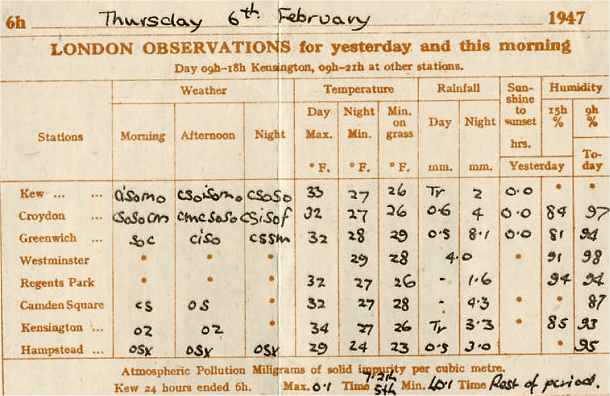 6h Thursday 6th February 1947
LONDON OBSERVATIONS for yesterday and this morning
Day 09h–18h Kensington, 09h–21h at other stations.
Weather Temperature Rainfall Sun-shine to sunset Humidity
Stations Morning Afternoon Night Day Max. Night Min. Min. on grass Day Night hrs. 15h % 9h %
° F. ° F. ° F. mm. mm. Yesterday To-day
Kew ... ... cisomo csoisomo csoso 33 27 26 Tr 2 0.0 * *
Croydon ... csosocm cmcsoso csisof 32 27 26 0.6 4 0.0 84 97
Greenwich ... soc ciso cssm 32 28 29 0.5 8.1 0.0 81 94
Westminster * * * 29 28 4.0 * 91 98
Regents Park * * * 32 27 26 - 1.6 94 94
Camden Square cs os * 32 27 28 - 4.3 * * 87
Kensington ... oz oz * 34 27 26 Tr 3.3 * 85 93
Hampstead ... osx osx osx 29 24 23 0.5 3.0 * 95
Atmospheric Pollution Miligrams of solid impurity per cubic metre.
Kew 24 hours ended 6h. Max. 0.1 Time 5th Min. <0.1 Time Rest of period.